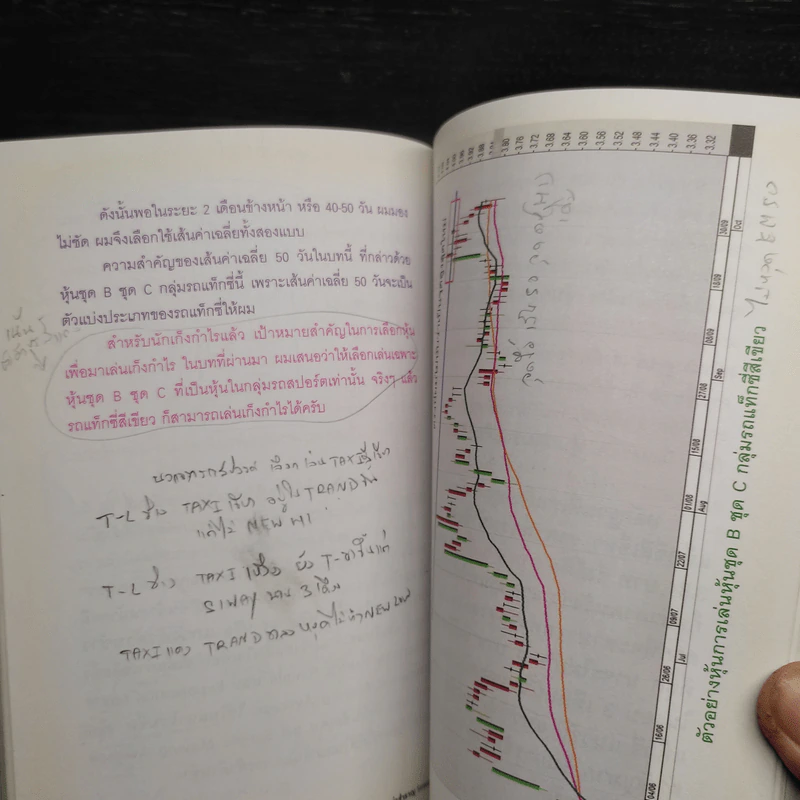 ดังนั้นพอในระยะ 2 เดือนข้างหน้า หรือ 40-50 วัน ผมมอง
ไม่ชัด ผมจึงเลือกใช้เส้นค่าเฉลี่ยทั้งสองแบบ
ความสำคัญของเส้นค่าเฉลี่ย 50 วันในบทนี้ ที่กล่าวด้วย
หุ้นชุด B ชุด C กลุ่มรถแท็กซี่นี้ เพราะเส้นค่าเฉลี่ย 50 วันจะเป็น
ตัวแบ่งประเภทของรถแท็กซี่ให้ผม
สำหรับนักเก็งกำไรแล้ว เป้าหมายสำคัญในการเลือกหุ้น
เพื่อมาเล่นเก็งกำไร ในบทที่ผ่านมา ผมเสนอว่าให้เลือกเล่นเฉพาะ
หุ้นชุด B ชุด C ที่เป็นหุ้นในกลุ่มรถสปอร์ตเท่านั้น จริงๆ แล้ว
รถแท็กซี่สีเขียว ก็สามารถเล่นเก็งกำไรได้ครับ
TAXI
T-L ช่วง TAXI เขียว อยู่ใน TRAND ขึ้น
แต่ไม่ NEW HI
T-L ช่วง TAXI ยัง T-ขาขึ้นแต่
SIWAY นาน 3 เดือน
TAXI แดง TRAND ขาลง NEW LOW
ตัวอย่างหุ้นการเล่นหุ้นชุด B ชุด C กลุ่มรถแท็กซี่สีเขียว
3.80
3.76
3.72
3.68
3.64
3.60
3.56
3.52
3.48
3.44
3.40
3.36
3.32
04/06
16/06
26/06
Jul
09/07
22/07
01/08
Aug
15/08
27/08
Sep
08/09
18/09
30/09
Oct